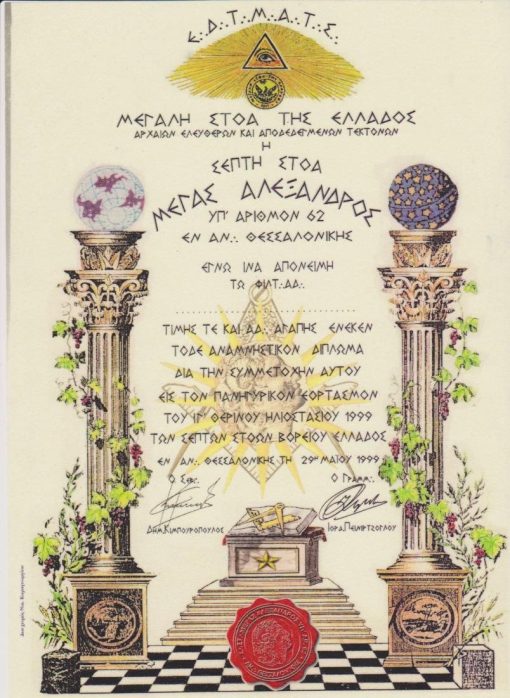 Ε∴Δ∴Τ∴Μ∴Α∴Τ∴Σ∴
ΜΕΓΑΛΗ ΣΤΟΑ ΤΗΣ ΕΛΛΑΔΟΣ
ΑΡΧΑΙΩΝ ΕΛΕΥΘΕΡΩΝ ΚΑΙ ΑΠΟΔΕΔΕΓΜΕΝΩΝ ΤΕΚΤΟΝΩΝ
Η
ΣΕΠΤΗ ΣΤΟΑ
ΜΕΓΑΣ ΑΛΕΞΑΝΔΡΟΣ
ΥΠ' ΑΡΙΘΜΟΝ 62
ΕΝ ΑΝ∴ ΘΕΣΣΑΛΟΝΙΚΗΣ
ΕΓΝΩ ΙΝΑ ΑΠΟΝΕΙΜΗ
ΤΩ ΦΙΛΤ∴ΑΔ∴
ΤΙΜΗΣ ΤΕ ΚΑΙ ΑΔ∴ ΑΓΑΠΗΣ ΕΝΕΚΕΝ
ΤΟΔΕ ΑΝΑΜΝΗΣΤΙΚΟΝ ΔΙΠΛΩΜΑ
ΔΙΑ ΤΗΝ ΣΥΜΜΕΤΟΧΗΝ ΑΥΤΟΥ
ΕΙΣ ΤΟΝ ΠΑΝΗΓΥΡΙΚΟΝ ΕΟΡΤΑΣΜΟΝ
ΤΟΥ ΘΕΡΙΝΟΥ ΗΛΙΟΣΤΑΣΙΟΥ 1999
ΤΩΝ ΣΕΠΤΩΝ ΣΤΟΩΝ ΒΟΡΕΙΟΥ ΕΛΛΑΔΟΣ
ΕΝ ΑΝ∴ ΘΕΣΣΑΛΟΝΙΚΗΣ ΤΗ 29η ΜΑΙΟΥ 1999
Ο ΣΕΒ∴ Ο ΓΡΑΜΜ∴
ΔΗΜ.ΚΙΜΠΟΥΡΟΠΟΥΛΟΣ